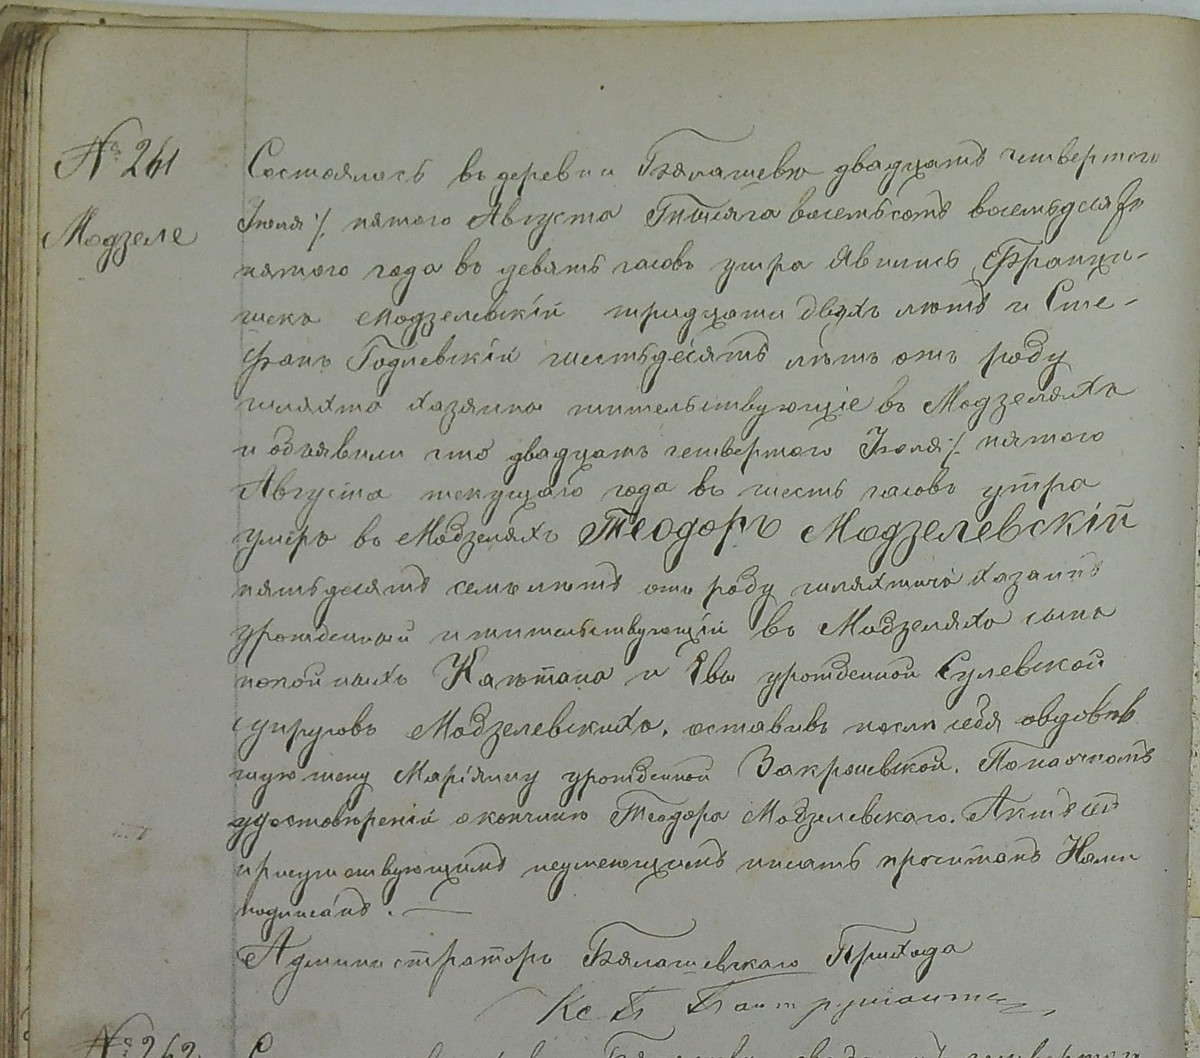 № 261
Модзеле
Состоялось въ деревни Бялашеве двадцать четвертого
Іюля /. пятого Августа Тысяга восемьсотъ восемьдеся
пятого года въ девять часовъ утра явились Францы-
шекъ Модзелевскій тридцати двухъ лѣтъ и Сте-
фанъ Годлевскій шестьдесятъ лѣтъ отъ роду
шляхта хазяина жительствующіе въ Модзеляхъ
и объявили что двадцать четвертого Іюля /. пятого
Августа текущаго года въ шесть часовъ утра
умеръ въ Модзеляхъ Теодоръ Модзелевскій
пятьдесятъ семь лѣтъ отъ роду шляхтичъ хазаинъ
урожденный и жительствующій въ Модзеляхъ сынъ
покойныхъ Каетана и Евы урожденной Сулевской
супруговъ Модзелевскихъ, оставивъ после себя овдовѣв
шую жену Маріянну урожденной Закржевской. По наочномъ
удостовѣреніи о кончинѣ Теодора Модзелевскаго. Актъ сей
присутствующимъ неумеющимъ писать прочитанъ Нами
подписанъ. —
Администраторъ Бялашевскаго Прихода
Кс
№ 262